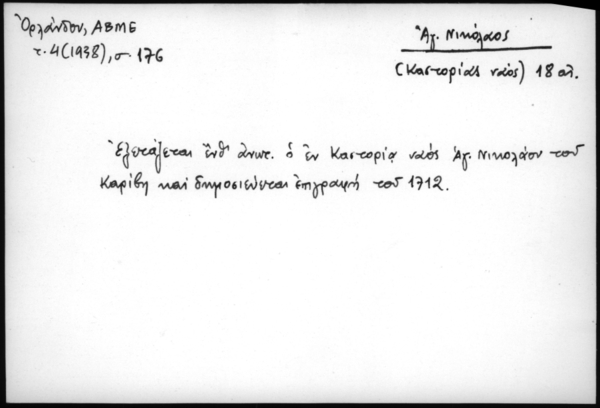 Ὀρλάνδου, ΑΒΜΕ
τ. 4 (1938), σ. 176
Ἅγ. Νικόλαος
(Καστορίας ναὸς) 18 αἰ.
Ἐξετάζεται ἔνθ' ἀνωτ. ὁ ἐν Καστορίᾳ ναὸς Ἁγ. Νικολάου τοῦ
Καρίβη καὶ δημοσιεύεται ἐπιγραφή τοῦ 1712.